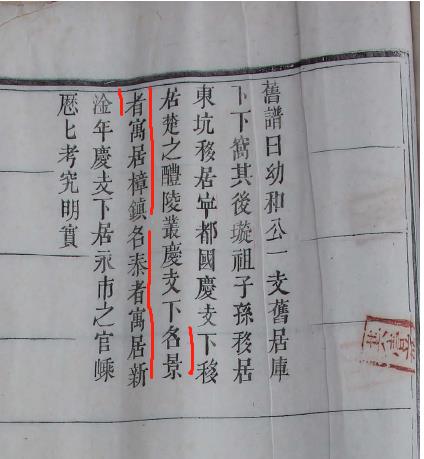 舊譜曰幼和公一支舊居庫
卜下窩其後璇祖子孫移居
東坑移居寕都國慶支下移
居楚之醴陵叢慶支下名景
者寓居樟鎮名泰者寓居新
淦年慶支下居永市之官嵊
厯匕考究明實